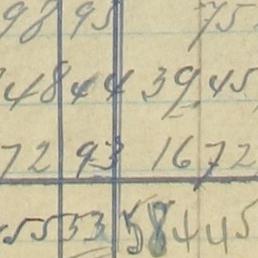 98 93 75
48 44 39 45
72 93 16 72
553 3 58 445